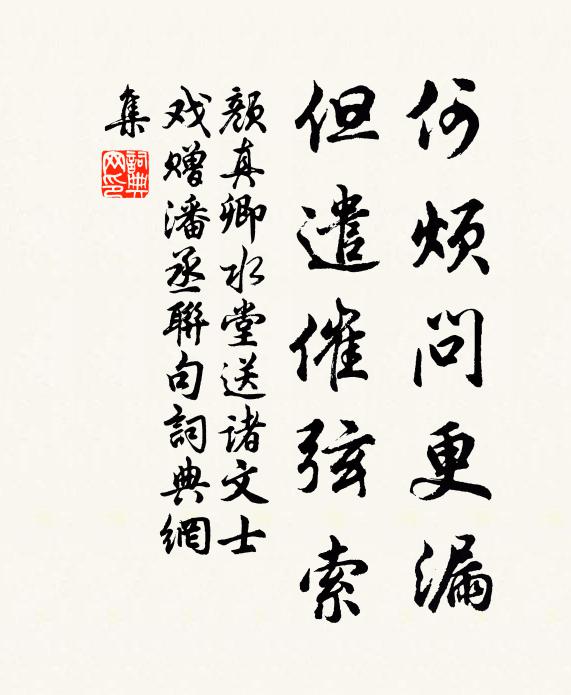 何烦問更漏
但遣催弦索
颜真卿水堂送诸文士
戏赠潘丞联句詞典網
集
詞典
网印